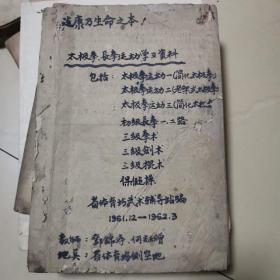 健康乃生命之本！
太极拳长拳运动学习资料
包括：太极拳运动一(简化太极拳)
太极拳运动二(老架式太极拳
太极拳运动三(简化太极
初级长拳一.二路
三级拳术
三级剑术
三级棍术
保健操
省体育场武术辅导站编
1961.12—1962.3
教师：
地点：省体育场侧草地